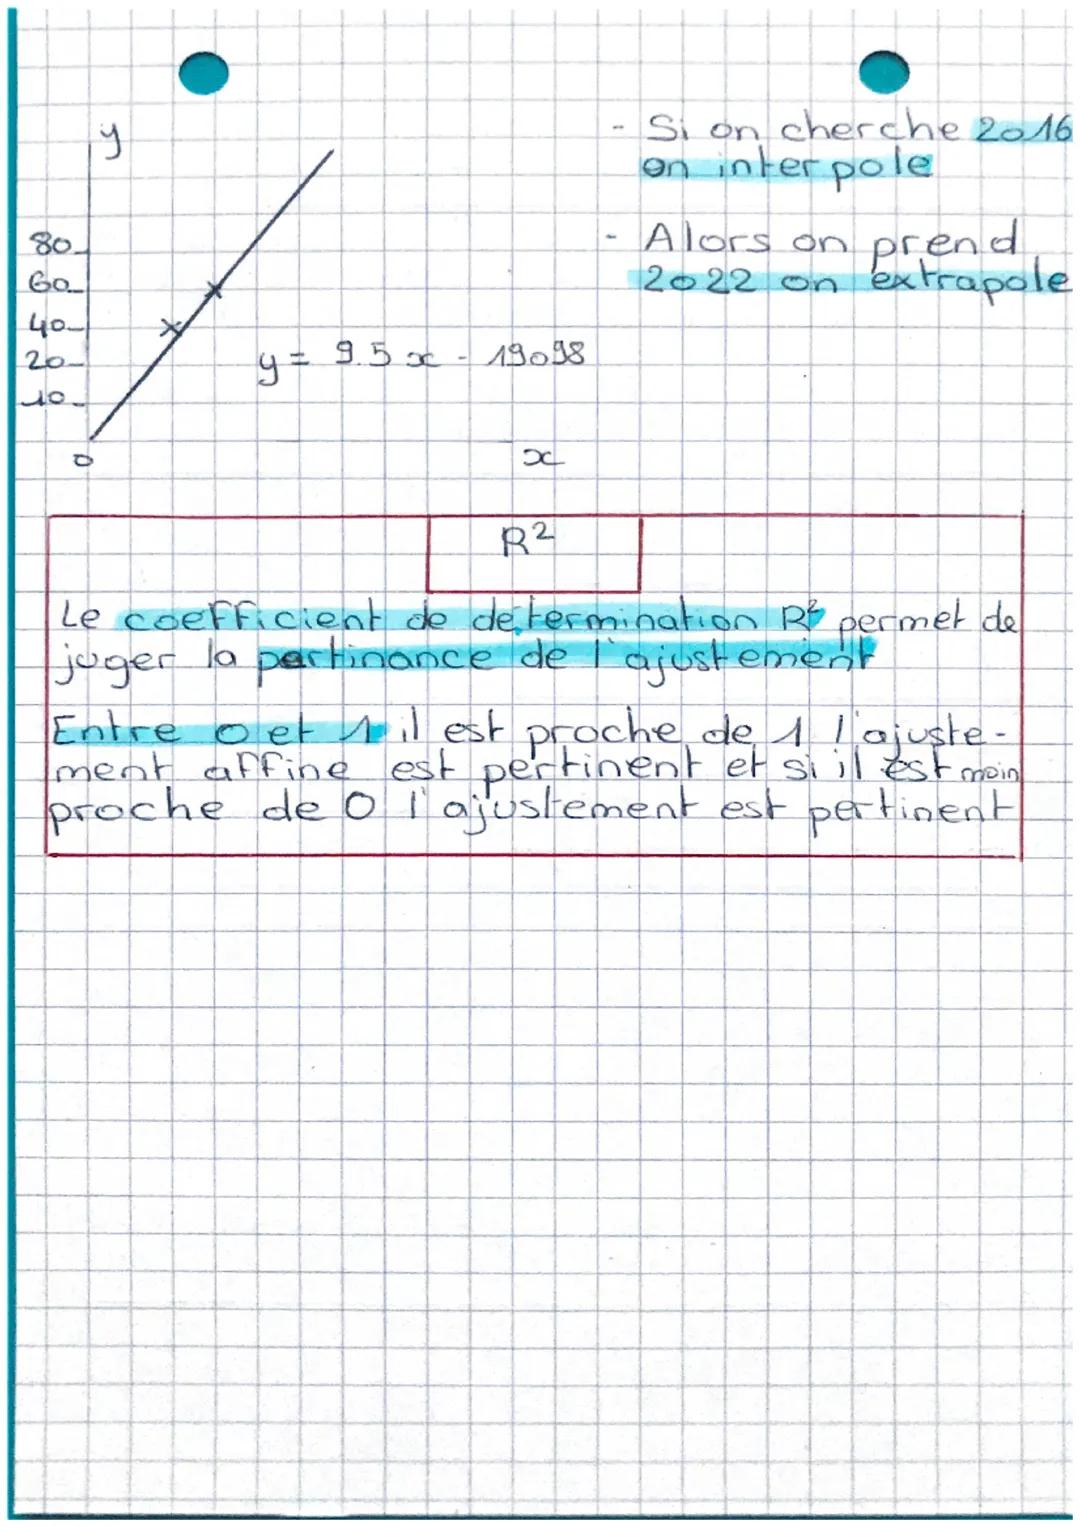 y
80
60
40
20
10
0
y = 9.5 x - 19098
x
- Si on cherche 2016
on interpole
- Alors on prend
2022 on extrapole
R²
Le coefficient de détermination R² permet de
juger la pertinance de l'ajustement
Entre 0 et 1 il est proche de 1 l'ajuste-
ment affine est pertinent et si il est moin
proche de 0 l'ajustement est pertinent